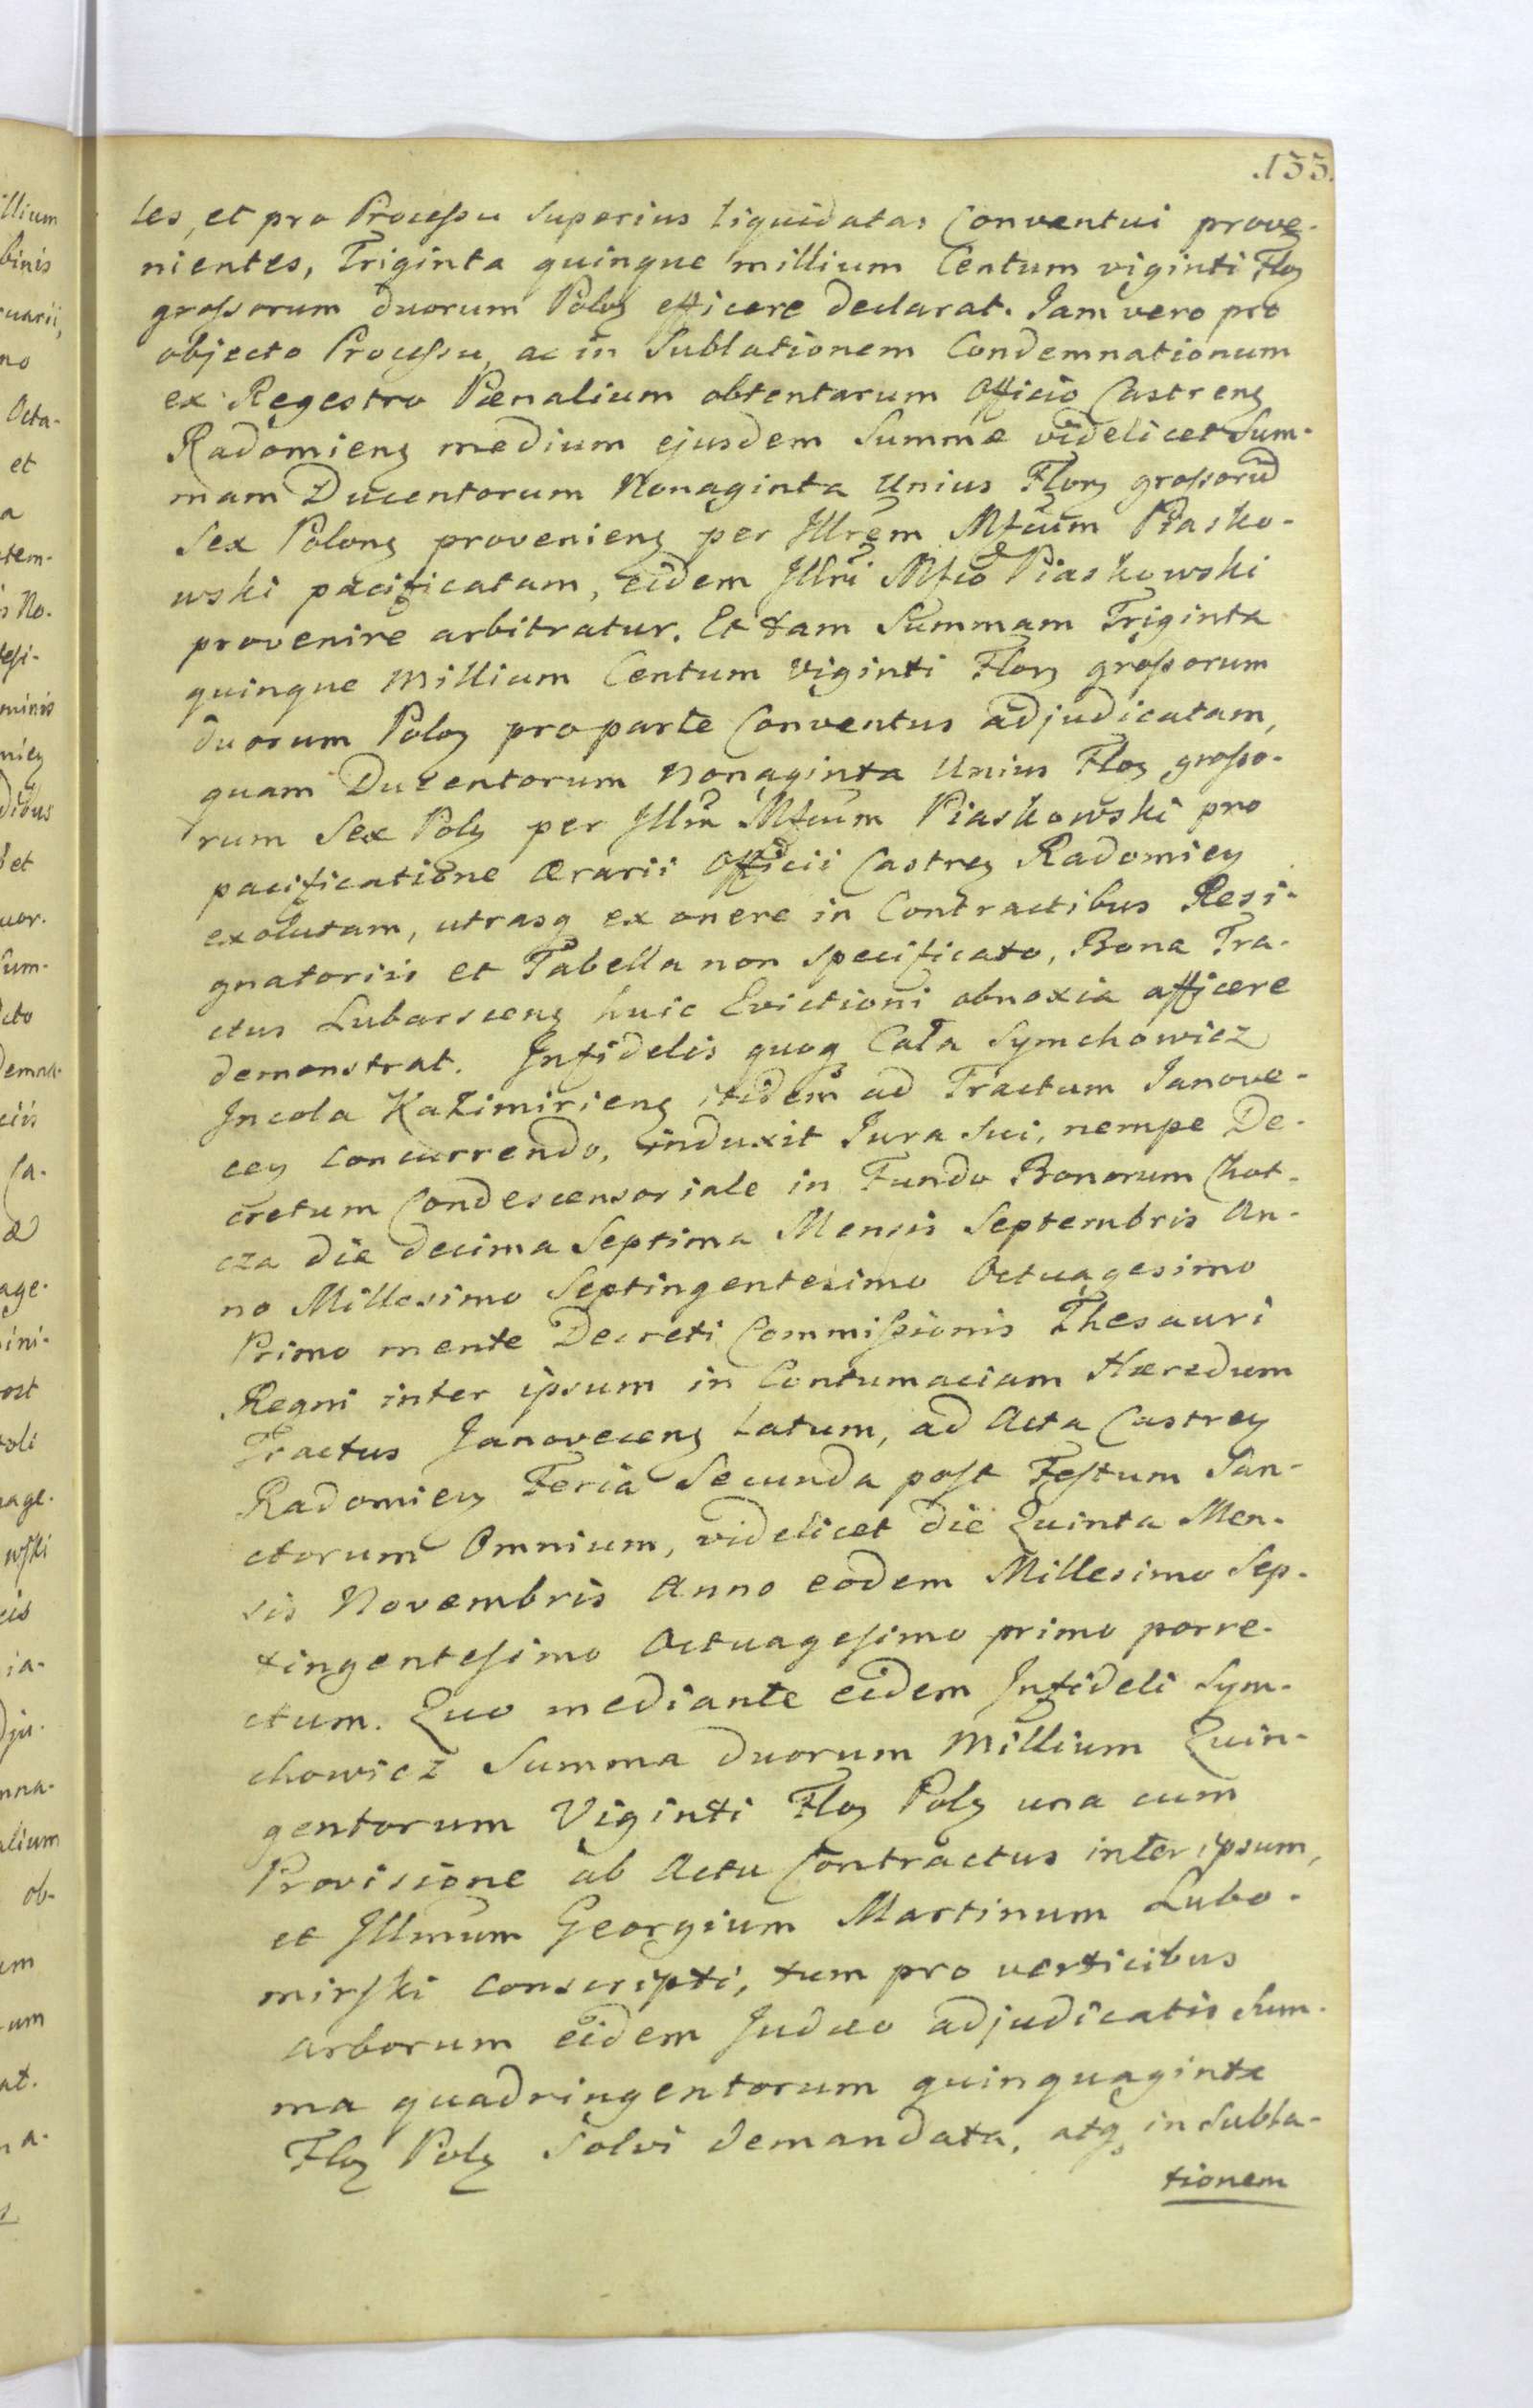 133.
les, et pro Processu superius liquidatas Conventui prove-
nientes, Triginta quinque millium Centum viginti Floŋ
grossorum duorum Poloŋ efficere declarat. Iam vero pro
objecto Processu, ac in Sublationem Condemnationum
ex Regestro Pœnalium obtentarum Officio Castrenŋ
Radomienŋ medium ejusdem Summæ videlicet Sum-
mam Ducentorum Nonaginta Unius Florŋ grossorū
Sex Polonŋ provenienŋ per Illrem Mfcum Piasko-
wski pacificatam, eidem Illri Mfco Piaskowski
provenire arbitratur. Et tam Summam Triginta
quinque Millium Centum Viginti Florŋ grossorum
duorum Poloŋ pro parte Conventus adjudicatam,
quam Ducentorum Nonaginta Unius Floŋ grosso-
rum Sex Polŋ per Illm̃ Mfcum Piaskowski pro
pacificatione ærarii Officii Castreŋ Radomieŋ
exolutam, utrasq ex onere in Contractibus Resi-
gnatoriis et Tabella non specificato, Bona Tra-
ctus Lubarscenŋ huic Evictioni obnoxia afficere
demonstrat. Infidelis quoq Cała Symchowicz
Incola Kazimirienŋ itidem ad Tractum Ianove-
ceŋ concurrendo, induxit Iura sui, nempe De-
cretum Condescensoriale in Fundo Bonorum Chot-
cza die decima Septima Mensis Septembris An-
no Millesimo Septingentesimo Octuagesimo
Primo mente Decreti Commissionis Thesauri
Regni inter ipsum in Contumaciam Hæredum
Tractus Janovecenŋ Latum, ad Acta Castreŋ
Radomieŋ Feria Secunda post Festum San-
ctorum Omnium, videlicet die Quinta Men-
sis Novembris Anno eodem Millesimo Sep-
tingentesimo Octuagesimo primo porre-
ctum. Quo mediante eidem Infideli Sym-
chowicz Summa duorum Millium Quin-
gentorum Viginti Floŋ Polŋ una cum
Provisione ab Actu Contractus inter ipsum,
et Illmum Georgium Martinum Lubo-
mirski conscripti, tum pro verticibus
arborum eidem Judæo adjudicatis Sum-
ma quadringentorum quinquaginta
Floŋ Polŋ Solvi demandata, atq in Subla-
tionem